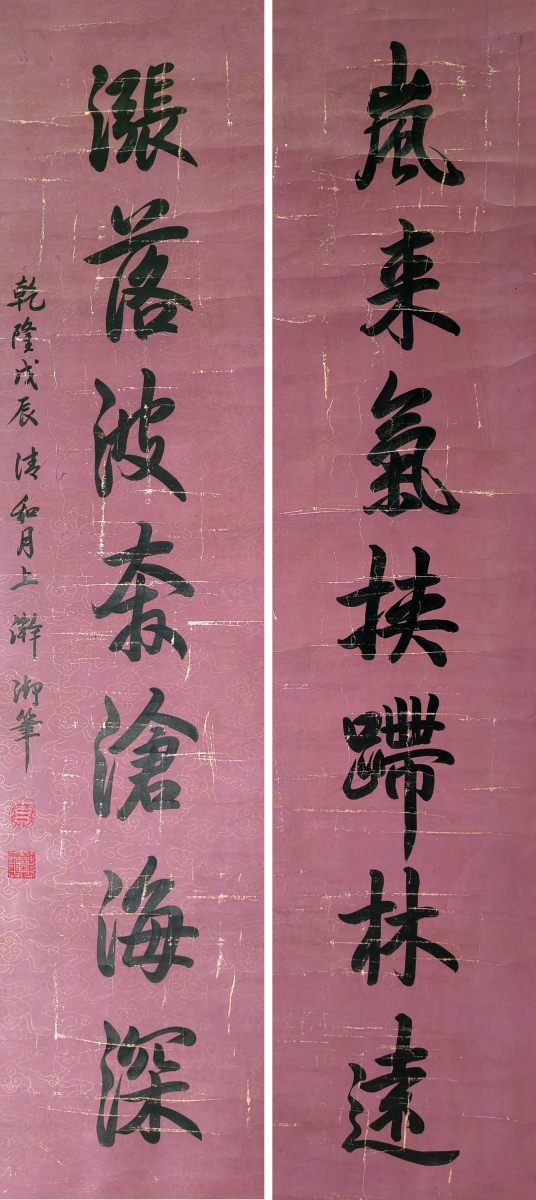 嵐来氣挟蹛林遠
漲落波滄海深
乾隆戊辰清和月上澣御筆